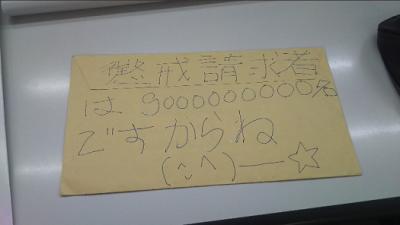 懲戒請求着
は9000000000名
ですからね
(^_^)―☆